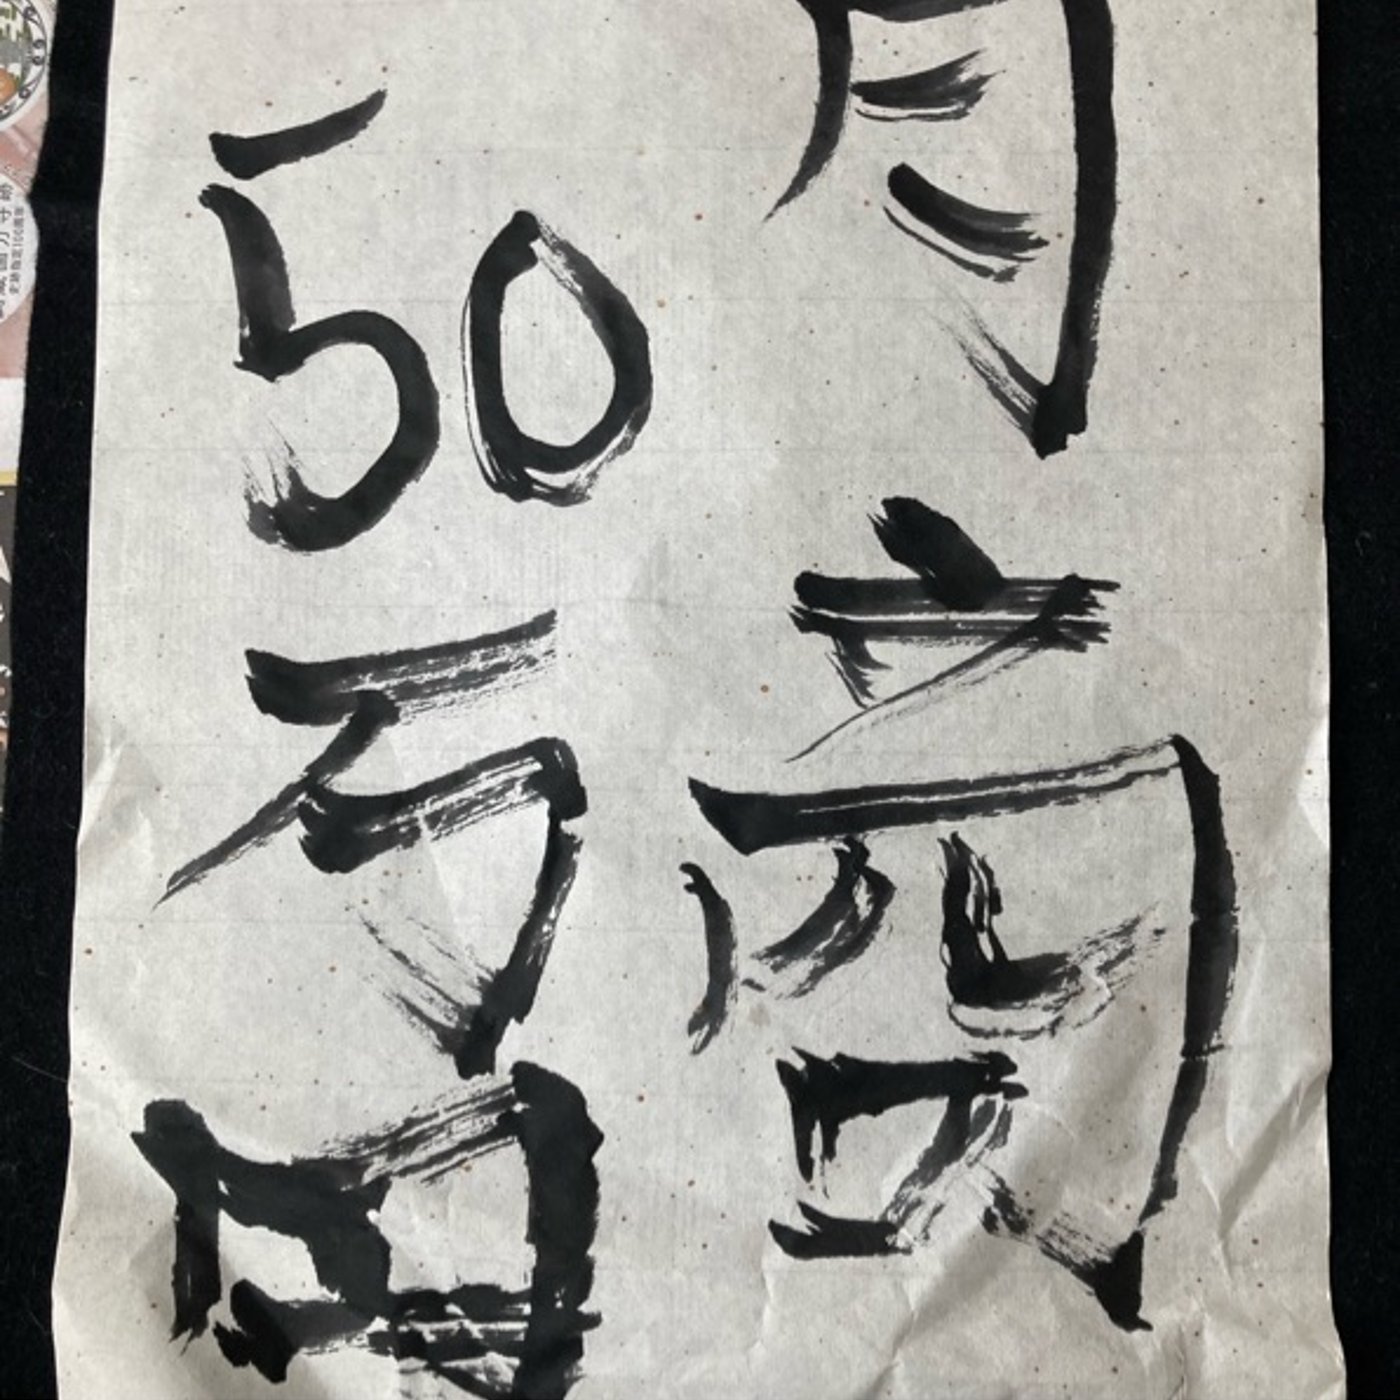 月商
50万円